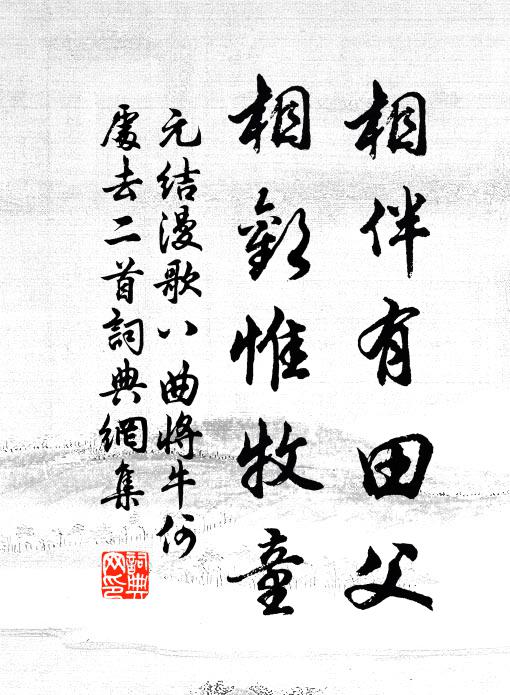 相伴有田父
相歡惟牧童
元結漫歌八曲將牛何
處去二首詞典網集
詞典
网印